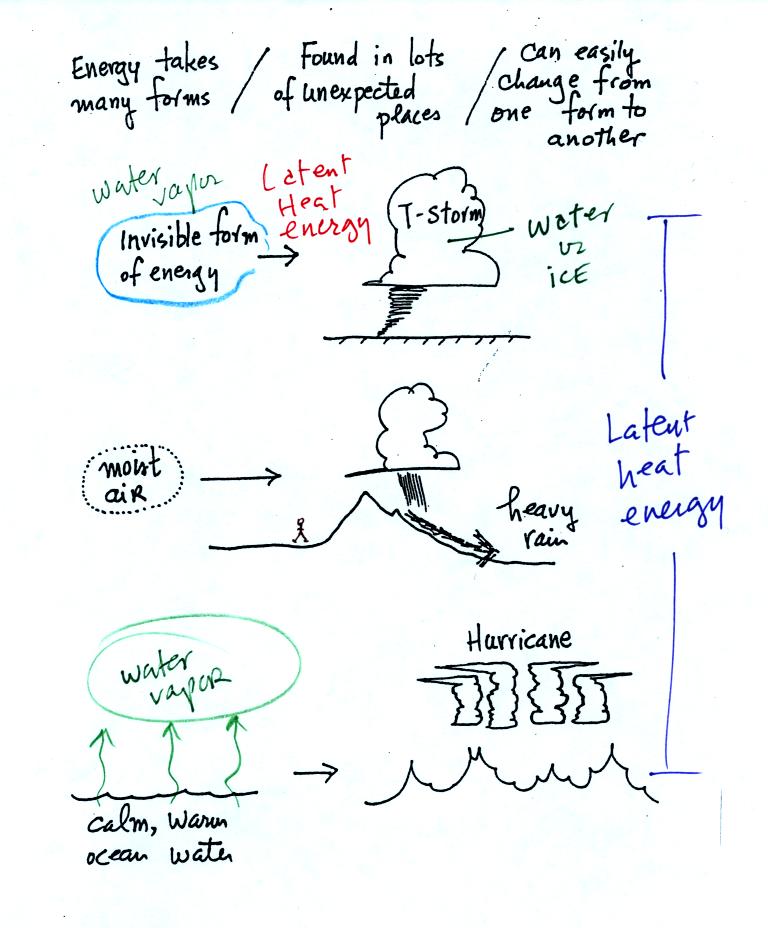 Energy takes
many forms
/
Found in lots
of unexpected
places
/
can easily
change from
one form to
another
water
vapor
Invisible form
of energy
Latent
Heat
energy
T-Storm
water
or
iCE
moist
aiR
heavy
rain
Latent
heat
energy
water
vapor
calm, warm
ocean water
Hurricane